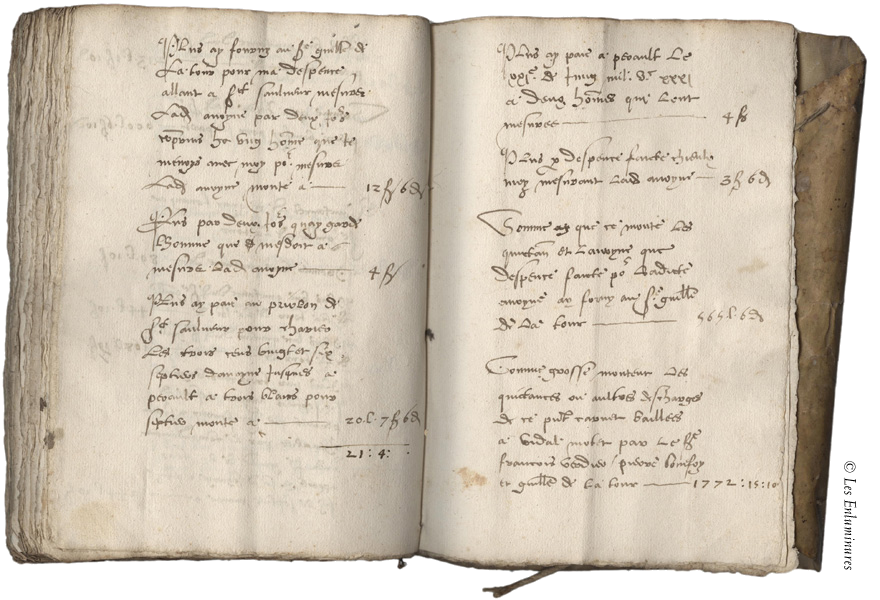 Plus ay fourny au Sr guille de
La tour pour ma despence
allant a St saulueur mesurer
Lad avoyne par deux Jors
comprins
menoys avec moy por mesurer
Lad avoyne monte a 12 ß 6 d
Plus par deux Jors quay garde
Lhomme que
mesure Lad avoyne 4 ß
Plus ay paie au
St saulueur pour charier
Les trois cens vingt et six
septiers davoyne Jusques a
peoault a trois blans pour
septier monte a 20 l. 7 ß 6 d
21 : 4 :
Plus ay paie a peoault Le
XXIe de Juing mil Vc XXXI
a deux homes que Lont
mesuree 4 ß
Plus p despence faicte
moy mesurant Lad avoyne 3 ß 6 d
Somme que ce monte Les
quictan et Lavoyne que
despence faicte por Ladicte
avoyne ay forny au Sr guille
de La tour 565 l. 6 d
Somme grosse montent Les
quictances ou aultres descharges
de ce put carnet baillees
a vidal motet par Le Sr
francois verdier / pierre bonfoy
et guille de La tour 1772 : 15 : 10
© Les Enluminures